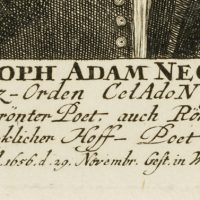 OPH ADAM NEG
z-Orden CelAdoN
rönter Poet. auch Rö
klicher Hoff-Poet
1656. d. 29. Novembr. Gest. in W